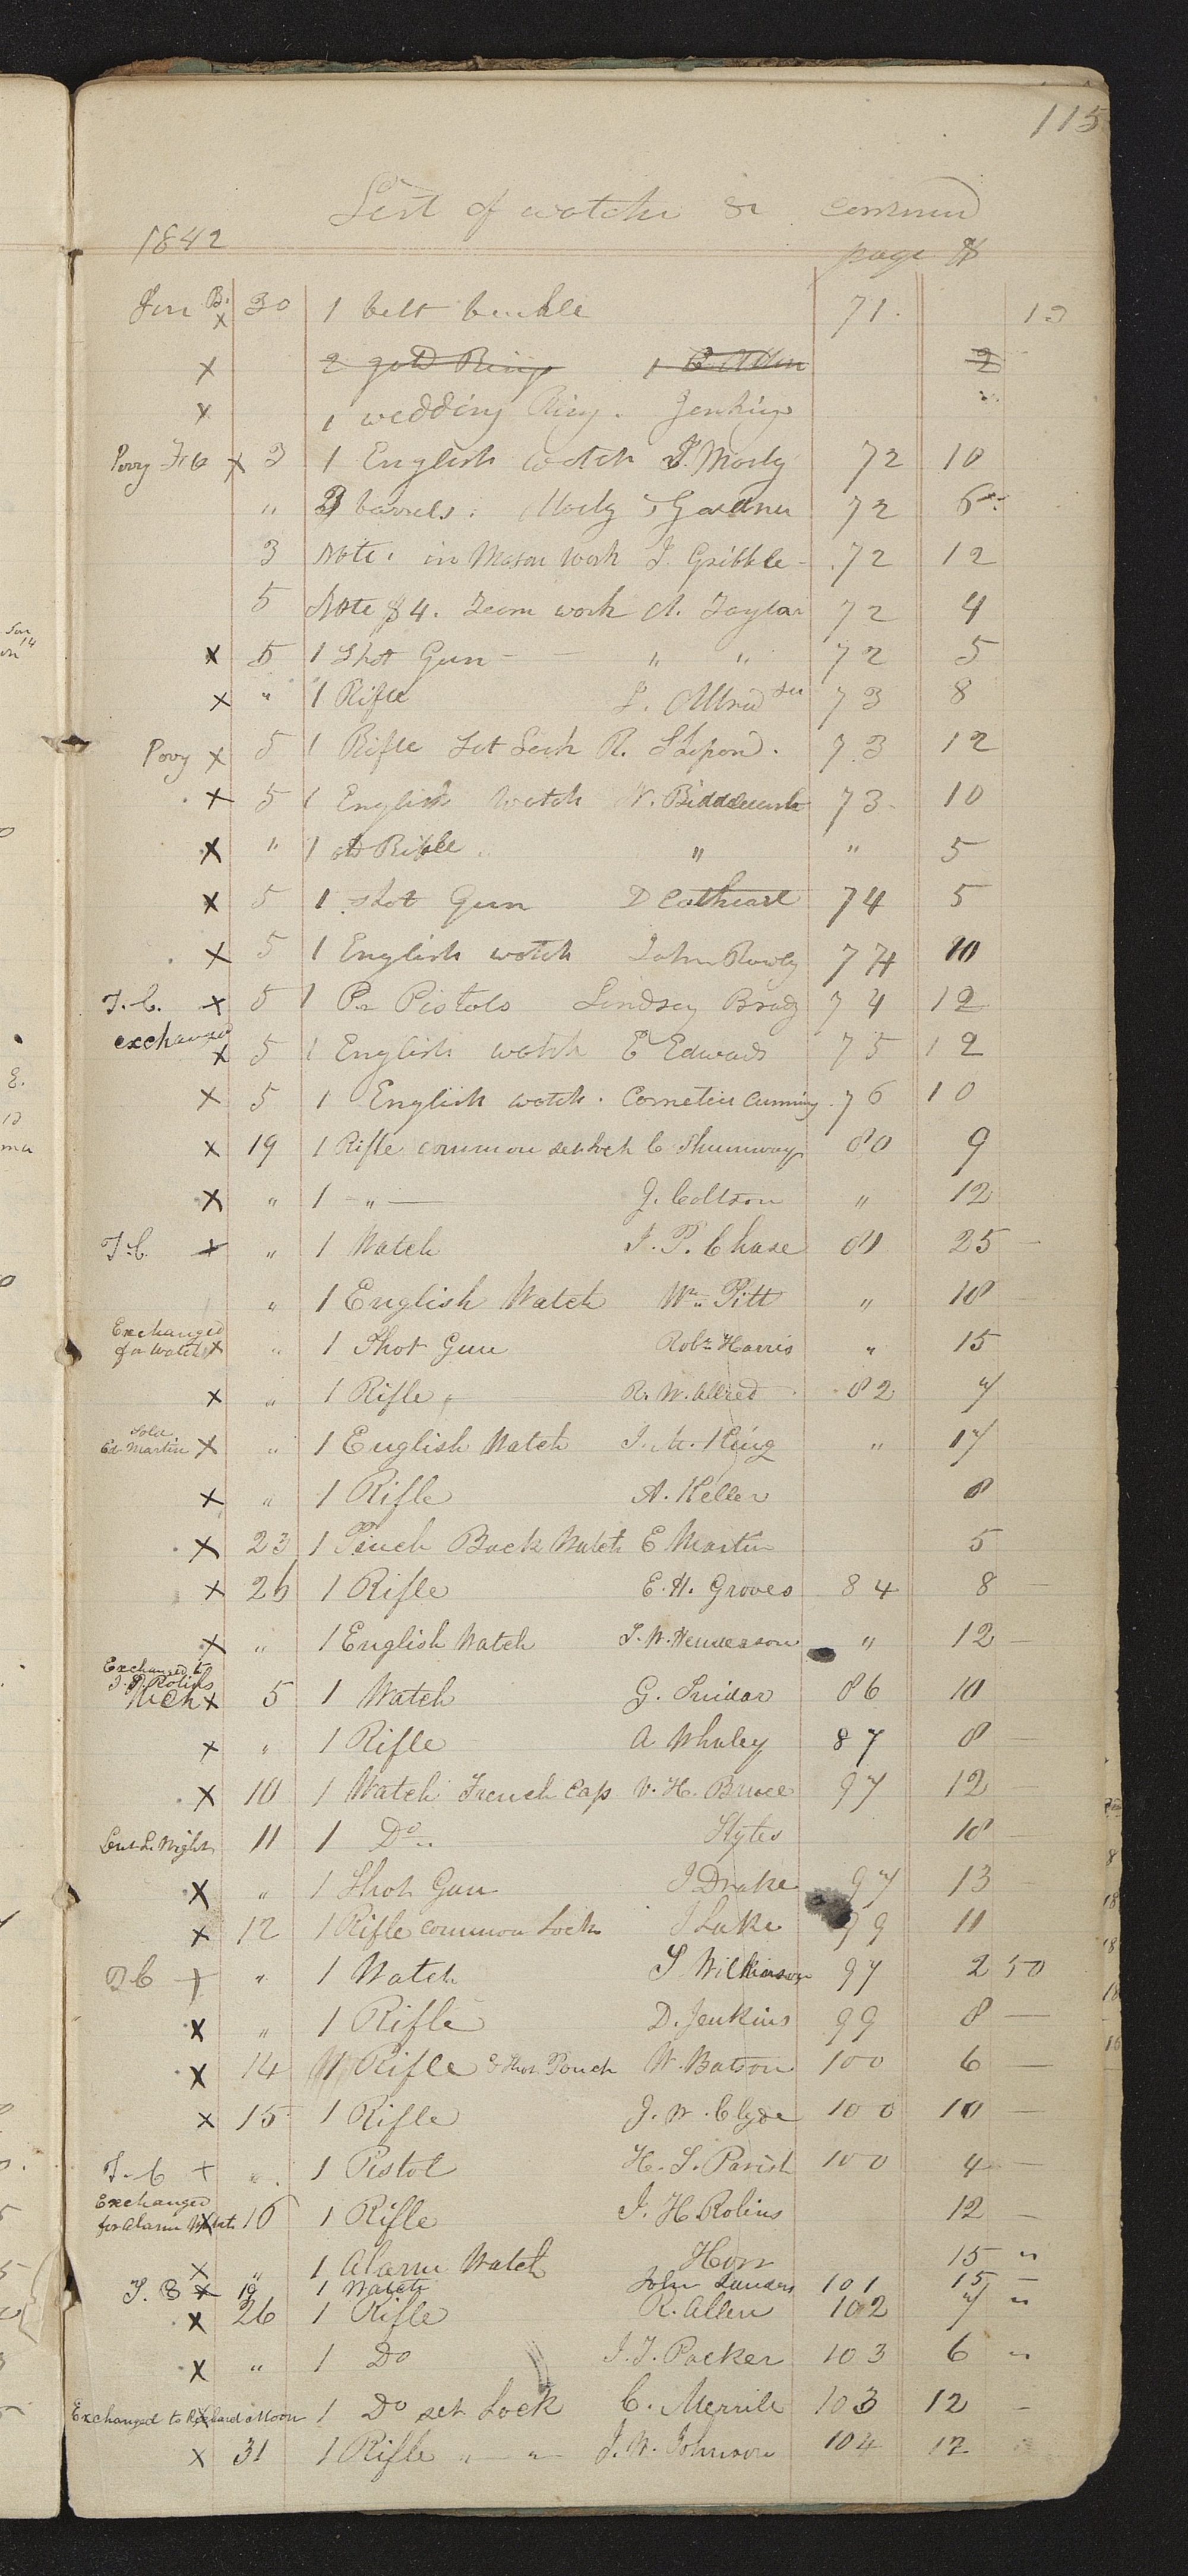 115
List of watches &c continued
1842
page $
Jan B. x 30 1 belt buckle 71. 12
x 2 gold Rings 2
x 1 wedding Ring. Jenkins
Povy Feb x 3 1 English watch T. Morly 72 10
" 3 barrels. Morly & Gardner 72 6
3 Note. in Mason work J. Gribble - 72 12
5 Note $4. Team work A. Taylor 72 4
x 5 1 Shot Gun - - " " 72 5
x " 1 Rifle I. Allred Sen 73 8
Povy x 5 1 Rifle Set Lock R. 73 12
x 5 1 English watch 73 10
x " 1 old Rifle " " 5
x 5 1 shot Gun D Cathcart 74 5
x 5 1 English watch John Rowly 74 10
T. C. x 5 1 Pr Pistols Lindsey Brady 74 12
exchanged
x 5 1 English watch E Edwards 75 12
x 5 1 English watch. Cornelius Cunning 76 10
x 19 1 Rifle common set lock C Shumway 80 9
x " 1 - " — J. Coltson " 12
T. C. x " 1 Watch I. P. Chase 81 25 -
" 1 English Watch Wm. Pitt " 10
Exchanged
for Watch x " 1 Shot Gun Robt Harris " 15
x " 1 Rifle R. W. Allred 82 7
Sold
Ed. Martin x " 1 English Watch King " 17
x " 1 Rifle A. Keller 8
x 23 1 Pinch Back Watch E Martin 5
x 26 1 Rifle E. H. Groves 84 8 —
x " 1 English Watch J. W. Henderson " 12 -
Exchanged to
J. H. Robins
Mch x 5 1 Watch G. Snidar 86 10
x " 1 Rifle A Whaley 87 8 —
x 10 1 Watch French Cap V. H. Bruce 97 12
11 1 Do " Styles 10 -
x " 1 Shot Gun J Drake 97 13
x 12 1 Rifle common Lock J Luke 99 11
T C x " 1 Watch S Wilkinson 97 2 50
x " 1 Rifle D. Jenkins 99 8 —
x 14 1 Rifle & Shot Pouch W. Batson 100 6 —
x 15 1 Rifle J. W. Clyde 100 10 —
T. C x " 1 Pistol H. S. Parish 100 4 —
Exchanged
for Alarm Watch x 16 1 Rifle J. H Robins 12 -
x " 1 Alarm Watch Horr 15 "
T. B x 19 1 Watch John Sanders 101 15 -
x 26 1 Rifle R. Allen 102 7 "
x " 1 Do J. T. Packer 103 6 "
Exchanged to Richard Moon x 1 Do set Lock C. Merrile 103 12 -
x 31 1 Rifle " — " — J. W. Johnson 104 12